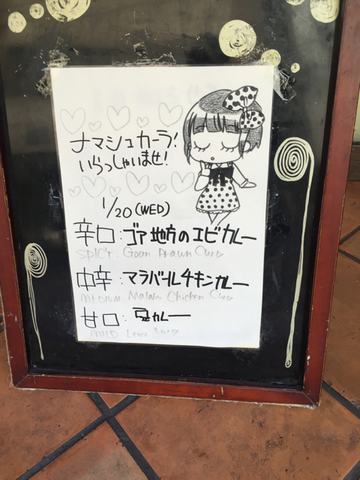 ナマシュカーラ!
いらっしゃいませ!
1/20(WED)
辛口:ゴア地方のエビカレー
SPICY Goan Prawn Curry
中辛:マラバールチキンカレー
Medium Malabar Chicken Curry
甘口:豆カレー
MILD